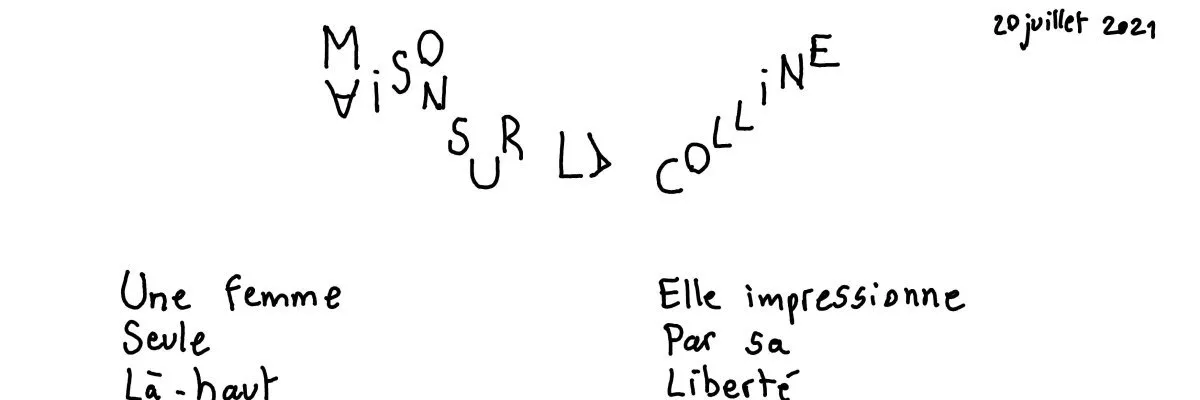 20 juillet 2021
MAiSON SUR LA COLLiNE
Une femme
Seule
Là-haut
Elle impressionne
Par sa
Liberté